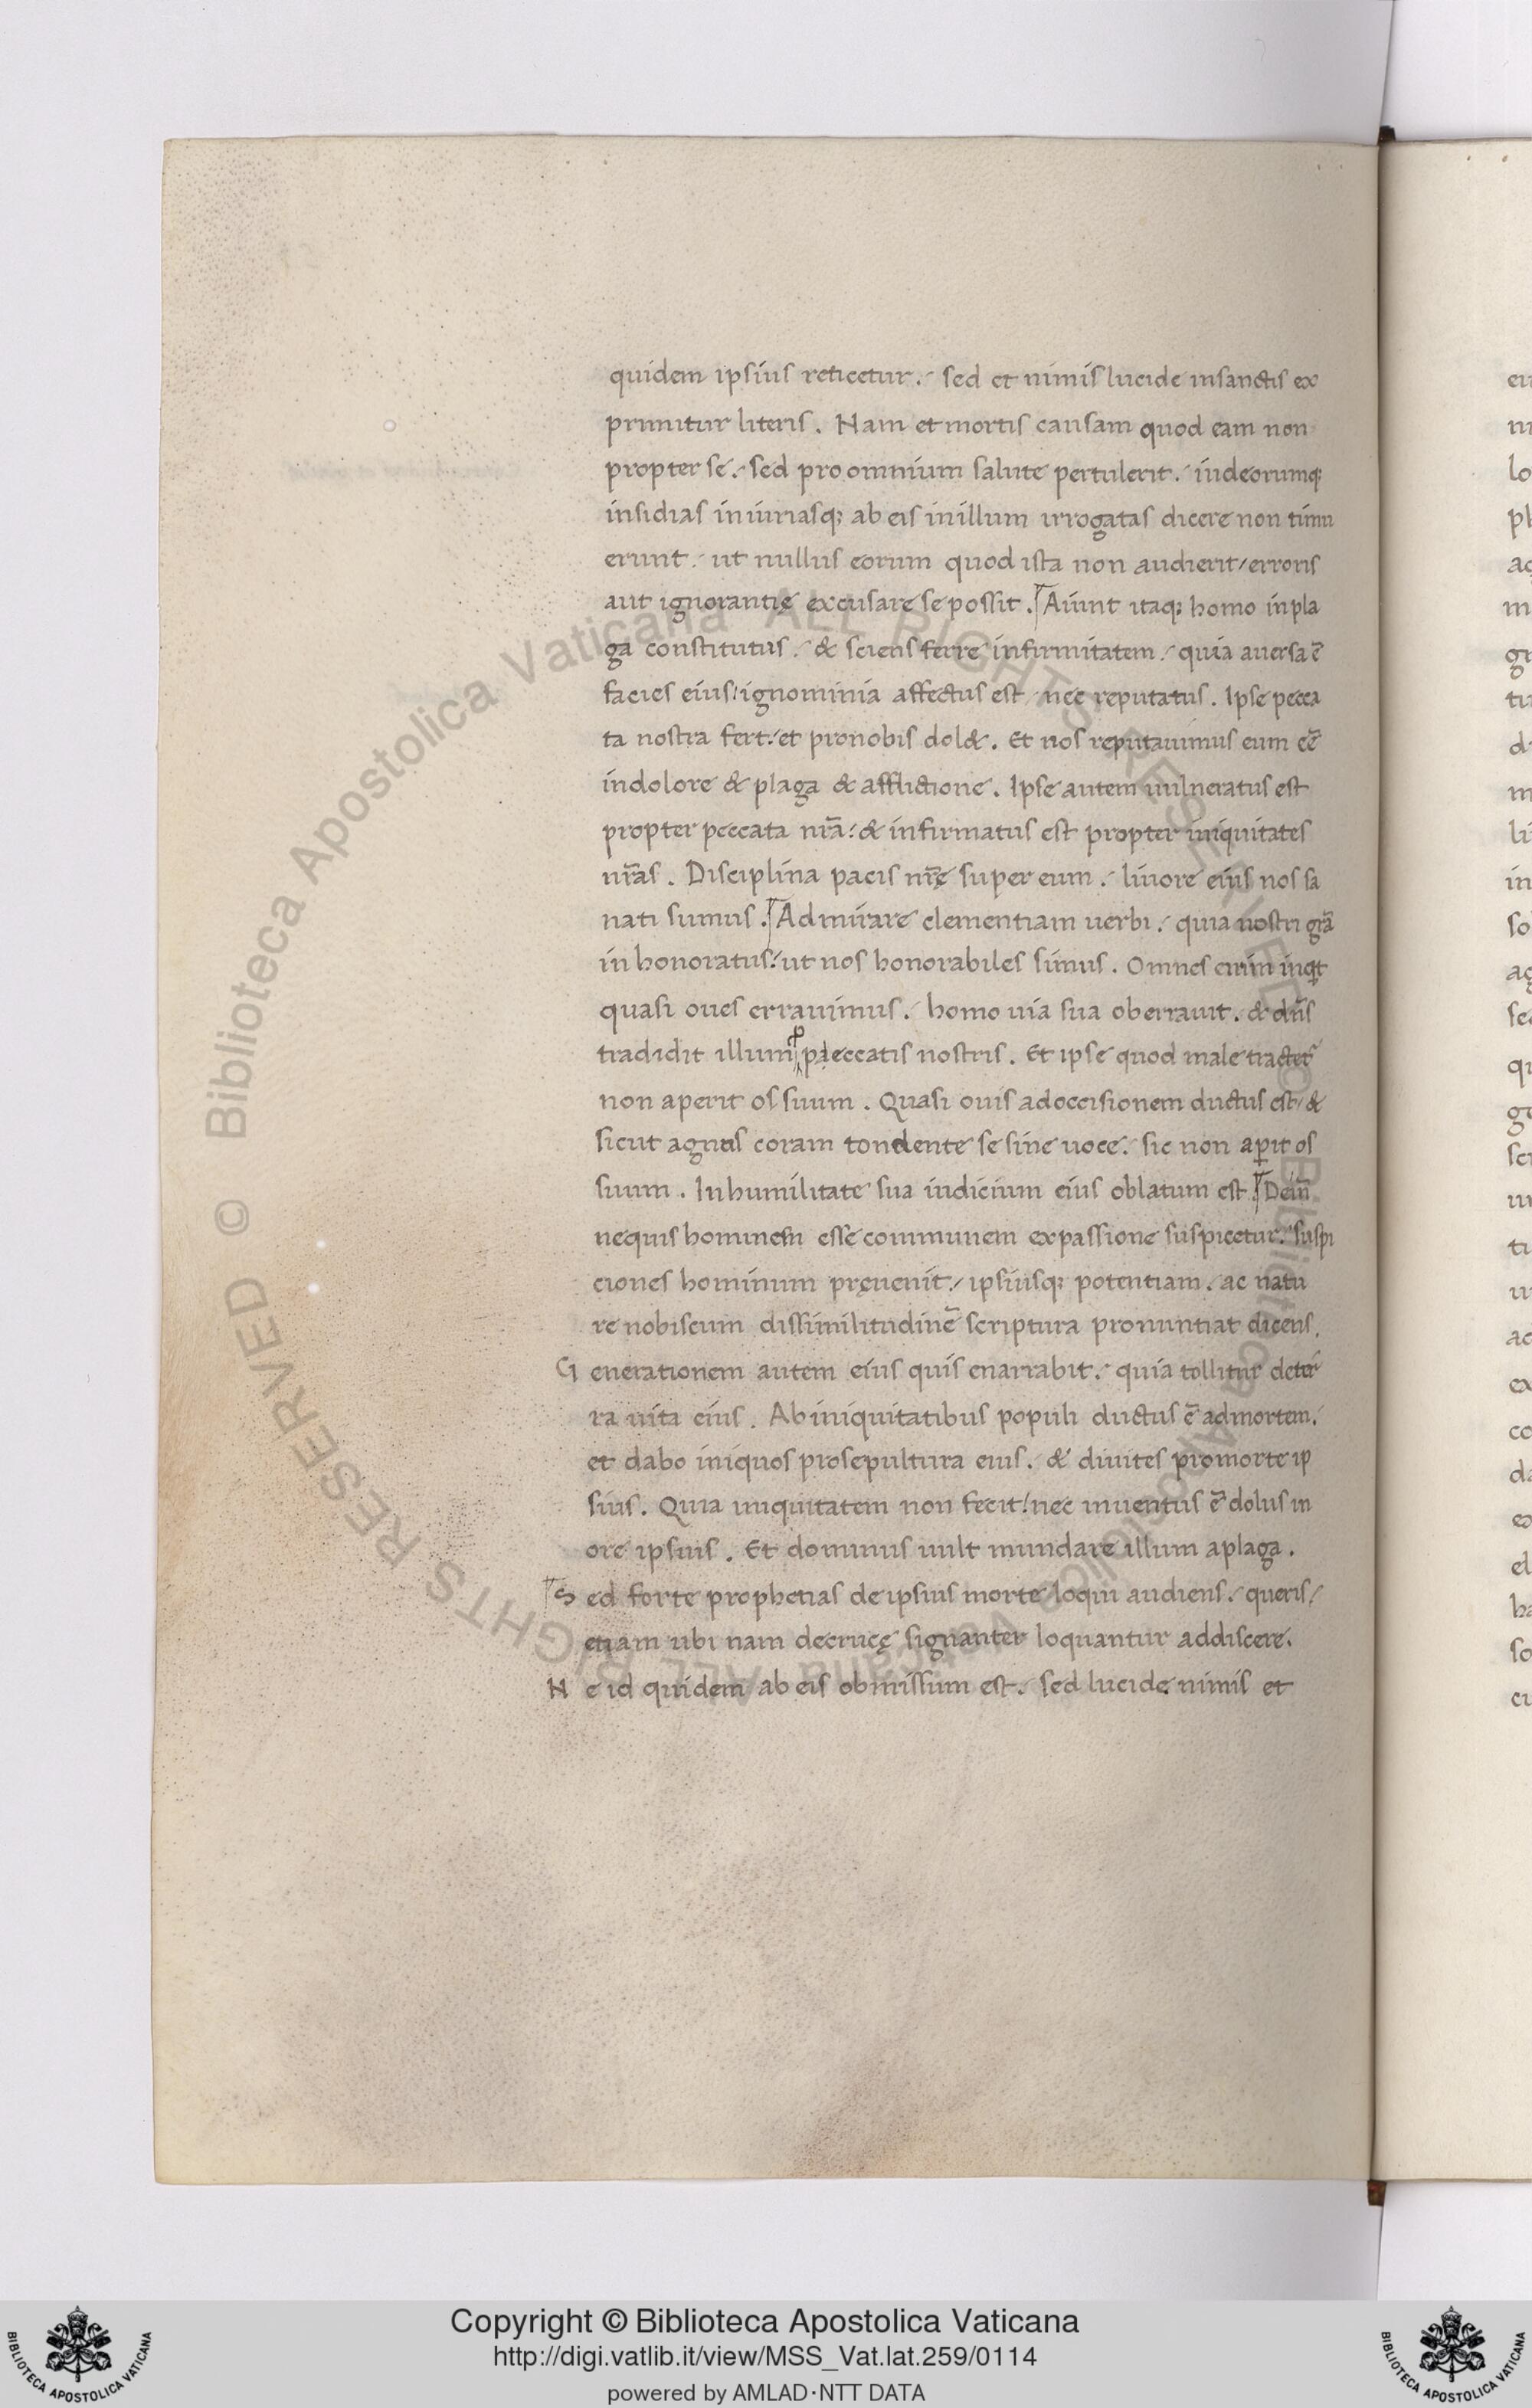 quidem ipsius reticetur. sed et nimis lucide insanctis ex
primitur literis. Nam et mortis causam quod eam non
propter se. sed pro omnium salute pertulerit. iudeorumq;
insidias iniuriasq; ab eis inillum irrogatas dicere non timu
erunt. ut nullus eorum quod ista non audierit/ erroris
aut ignorantię excusare se possit. Aiunt itaq; homo inpla
ga constitutus. & sciens ferre infirmitatem. quia auersa ē
facies eius! ignominia affectus est nec reputatus. Ipse pecca
ta nostra fert! et pronobis dol&. Et nos reputauimus eum eē
indolore & plaga & afflictione. Ipse autem uulneratus est
propter peccata nr̄a! & infirmatus est propter iniquitates
nr̄as. Disciplina pacis nr̄ę super eum. liuore eius nos sa
nati sumus. Admirare clementiam uerbi. quia nostri gr̄a
inhonoratus! ut nos honorabiles simus. Omnes enim inqt
quasi oues errauimus. homo uia sua oberrauit. & dn̄s
tradidit illum p peccatis nostris. Et ipse quod male tractet
non aperit os suum. Quasi ouis adoccisionem ductus est/ &
sicut agnus coram tondente se sine uoce. sic non apit os
suum. Inhumilitate sua iudicium eius oblatum est. Dein̄
nequis hominem esse communem expassione suspicetur. suspi
ciones hominum pręuenit! ipsiusq; potentiam. ac natu
re nobiscum dissimilitudinē scriptura pronuntiat dicens.
Generationem autem eius quis enarrabit. quia tollitur deter
ra uita eius. Abiniquitatibus populi ductus ē admortem.
et dabo iniquos prosepultura eius. & diuites promorte ip
sius. Quia iniquitatem non fecit! nec inuentus ē dolus in
ore ipsius. Et dominus uult mundare illum aplaga.
Sed forte prophetias de ipsius morte loqui audiens. queris/
etiam ubi nam decrucę signanter loquantur addiscere.
Ne id quidem ab eis obmissum est. sed lucide nimis et
Copyright © Biblioteca Apostolica Vaticana
http://digi.vatlib.it/view/MSS_Vat.lat.259/0114
powered by AMLAD·NTT DATA